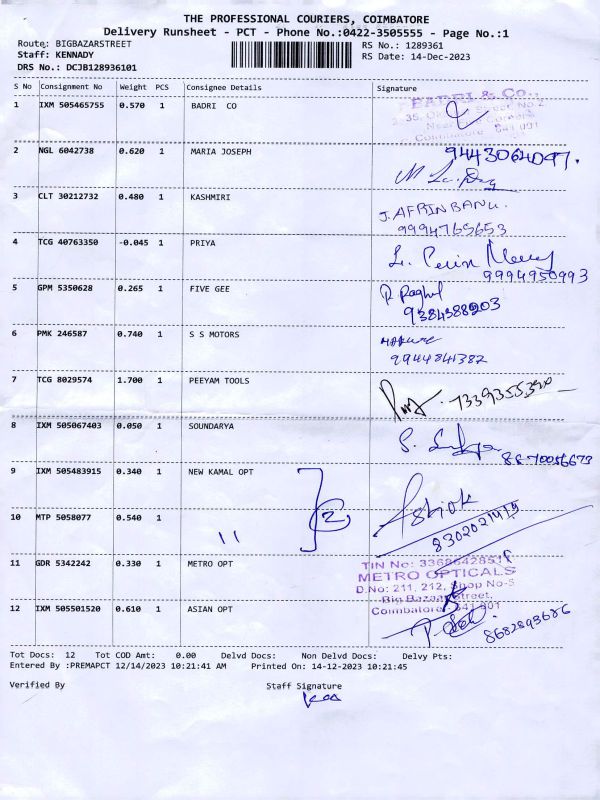 THE PROFESSIONAL COURIERS, COIMBATORE
Delivery Runsheet - PCT - Phone No.:0422-3505555 - Page No.:1
Route: BIGBAZARSTREET
RS No.: 1289361
Staff: KENNADY
RS Date: 14-Dec-2023
DRS No.: DCJB128936101
S No Consignment No Weight PCS Consignee Details Signature
1 IXM 505465755 0.570 1 BADRI CO
BADRI & Co.,
Coimbatore 641 001
2 NGL 6042738 0.620 1 MARIA JOSEPH
9443064097.
3 CLT 30212732 0.480 1 KASHMIRI
J. AFRINBANU.
9994765653
4 TCG 40763350 -0.045 1 PRIYA
9994950993
5 GPM 5350628 0.265 1 FIVE GEE
R Raghul
9384388203
6 PMK 246587 0.740 1 S S MOTORS
9944841382
7 TCG 8029574 1.700 1 PEEYAM TOOLS
8 IXM 505067403 0.050 1 SOUNDARYA
8870056673
9 IXM 505483915 0.340 1 NEW KAMAL OPT
2
Ashok
10 MTP 5058077 0.540 1 "
8302021419
11 GDR 5342242 0.330 1 METRO OPT
TIN No:
METRO OPTICALS
D.No: 211, 212, Shop No-5
Big Bazaar Street,
Coimbatore - 641 001
12 IXM 505501520 0.610 1 ASIAN OPT
8682893686
Tot Docs: 12 Tot COD Amt: 0.00 Delvd Docs: Non Delvd Docs: Delvy Pts:
Entered By :PREMAPCT 12/14/2023 10:21:41 AM Printed On: 14-12-2023 10:21:45
Verified By Staff Signature